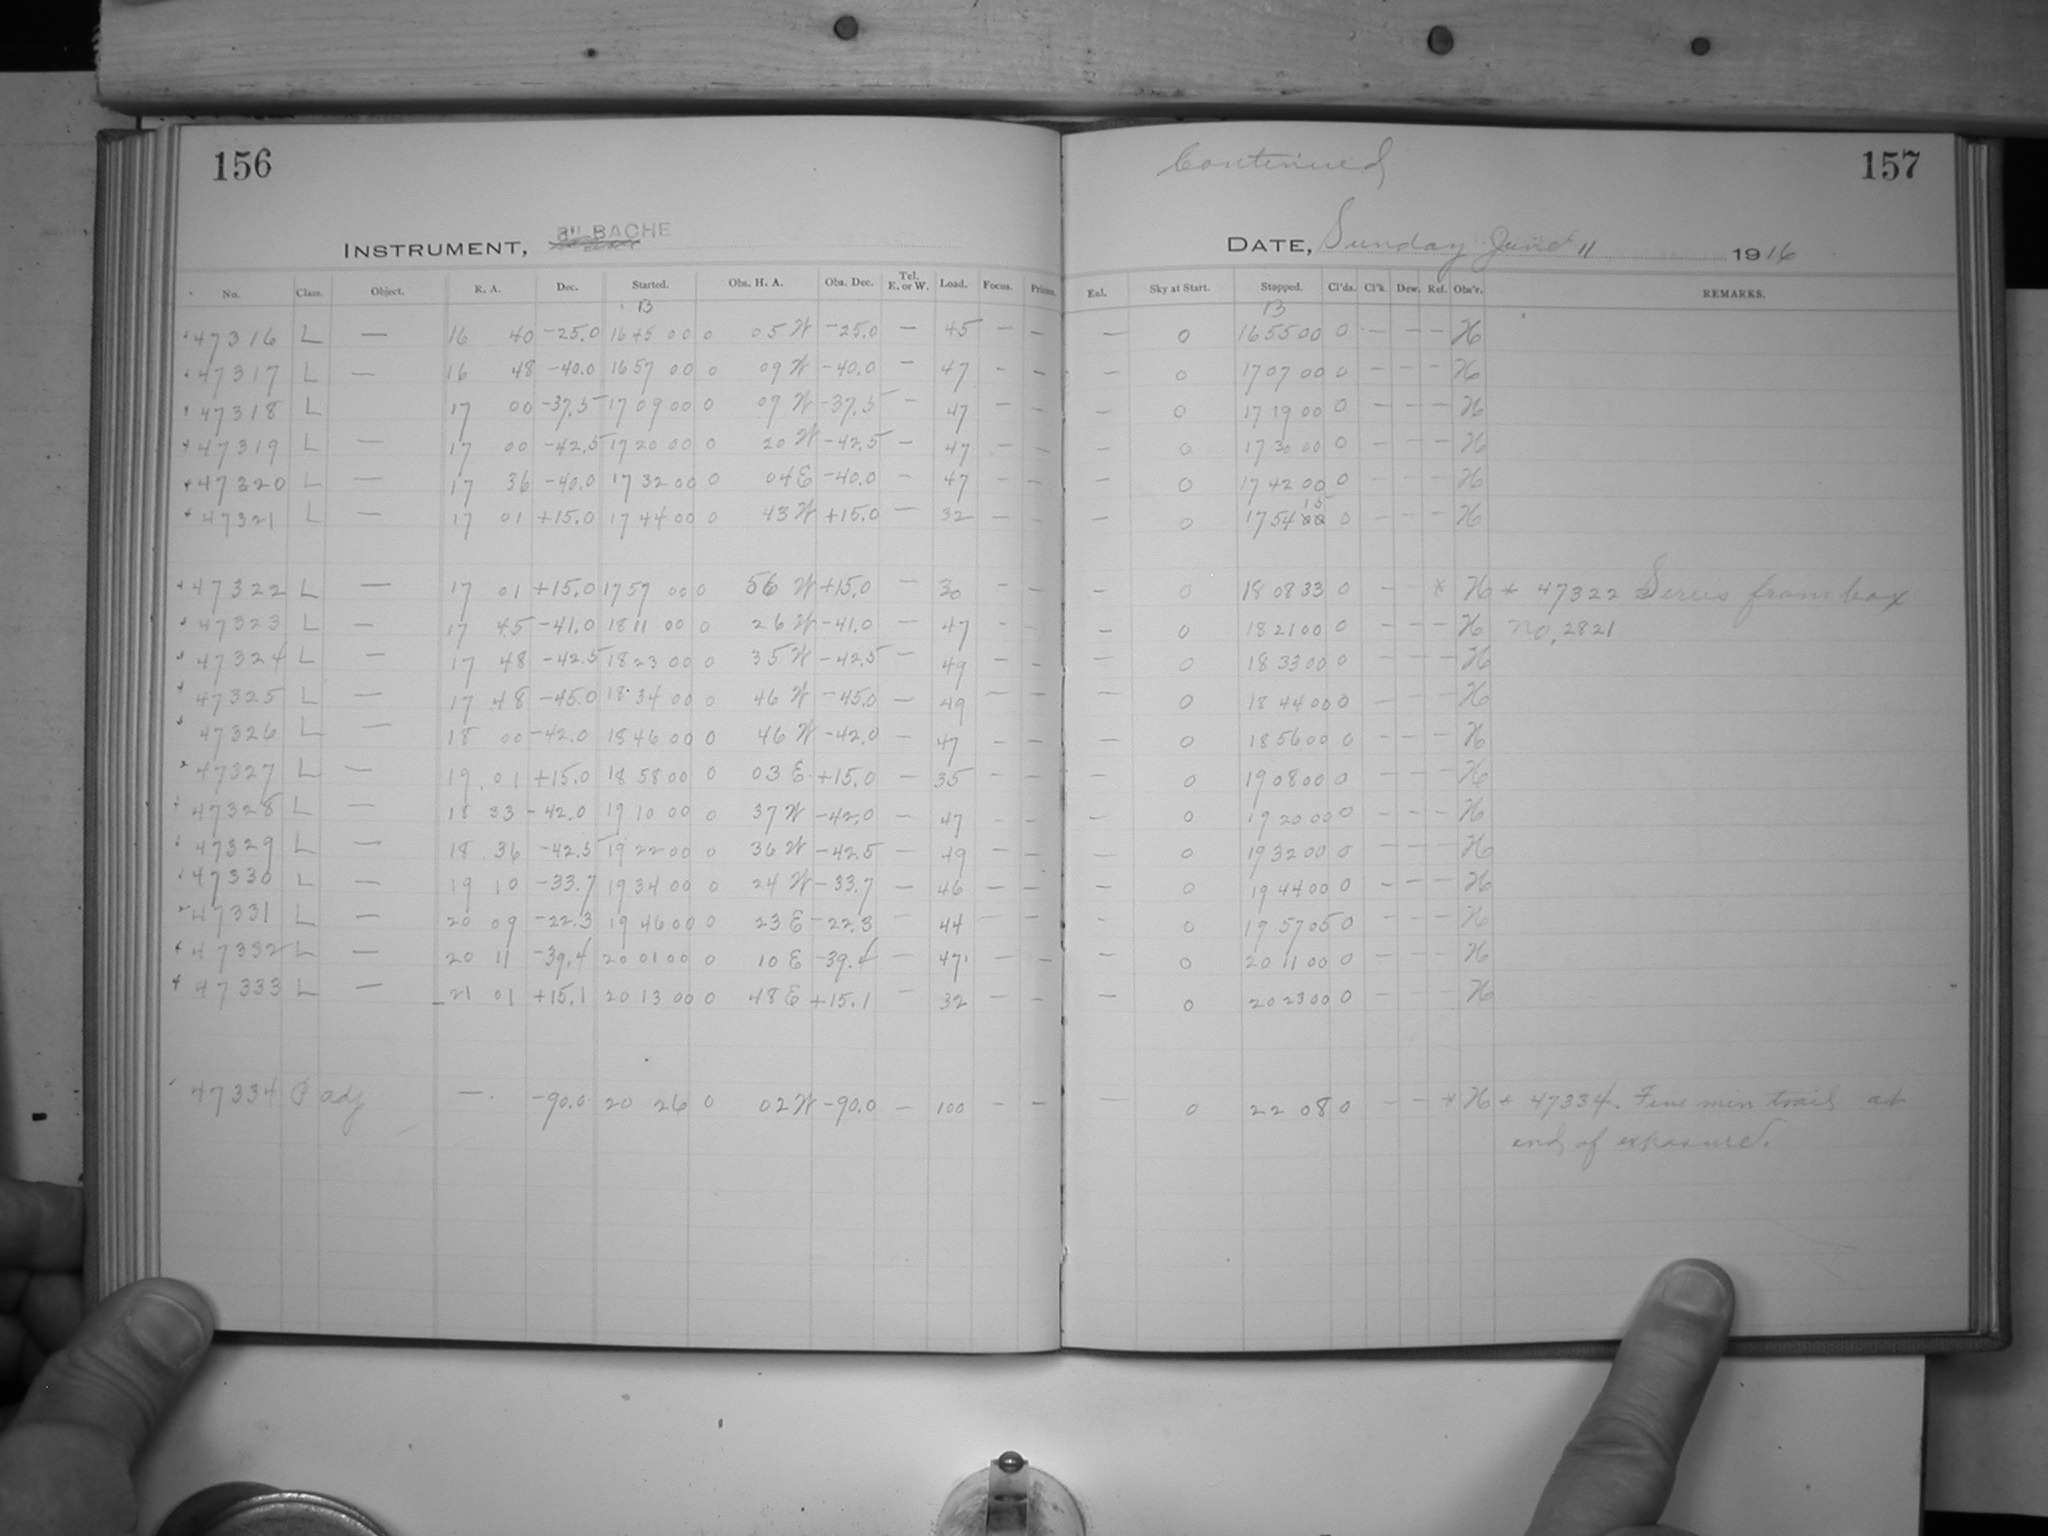 156
INSTRUMENT, 8" BACHE
No. Class. Object. R. A. Dec. Started. Obs. H. A. Obs. Dec. Tel. E. or W. Load. Focus. Prisms.
B
47316 L — 16 40 -25.0 16 45 00 0 05 W -25.0 — 45 — —
47317 L — 16 48 -40.0 16 57 00 0 09 W -40.0 — 47 - —
47318 L — 17 00 -37.5 17 09 00 0 09 W -37.5 — 47 - —
47319 L — 17 00 -42.5 17 20 00 0 20 W -42.5 — 47 - —
47320 L — 17 36 -40.0 17 32 00 0 04 E -40.0 - 47 - —
47321 L — 17 01 +15.0 17 44 00 0 43 W +15.0 — 32 — —
47322 L — 17 01 +15.0 17 57 00 0 56 W +15.0 — 30 - —
47323 L — 17 45 -41.0 18 11 00 0 26 W -41.0 — 47 - -
47324 L — 17 48 -42.5 18 23 00 0 35 W -42.5 — 49 - —
47325 L — 17 48 -45.0 18 34 00 0 46 W -45.0 — 49 — —
47326 L — 18 00 -42.0 18 46 00 0 46 W -42.0 — 47 — —
47327 L — 19 01 +15.0 18 58 00 0 03 E +15.0 — 35 - —
47328 L — 18 33 -42.0 19 10 00 0 37 W -42.0 — 47 - —
47329 L — 18 36 -42.5 19 22 00 0 36 W -42.5 — 49 - —
47330 L — 19 10 -33.7 19 34 00 0 24 W -33.7 — 46 — —
47331 L — 20 09 -22.3 19 46 00 0 23 E -22.3 — 44 — —
47332 L — 20 11 -39.4 20 01 00 0 10 E -39.4 — 47 — —
47333 L — 21 01 +15.1 20 13 00 0 48 E +15.1 — 32 — —
47334 P adj —. -90.0 20 26 0 02 W -90.0 — 100 — —
Continued
157
DATE, Sunday June 11 1916
Enl. Sky at Start. Stopped. Cl'ds. Cl'k. Dew. Ref. Obs'r. REMARKS.
B
— 0 16 55 00 0 - — — — H
— 0 17 07 00 0 — — — H
— 0 17 19 00 0 — — — H
— 0 17 30 00 0 — — — H
— 0 17 42 00 0 — — — H
— 0 17 54 15 0 — — — H
— 0 18 08 33 0 — — * H * 47322 Series from box
— 0 18 21 00 0 — — — H no. 2821
— 0 18 33 00 0 — — — H
— 0 18 44 00 0 — — — H
— 0 18 56 00 0 — — — H
— 0 19 08 00 0 — — — H
— 0 19 20 00 0 — — — H
— 0 19 32 00 0 — — — H
— 0 19 44 00 0 — — — H
- 0 19 57 05 0 — — — H
— 0 20 11 00 0 — — — H
— 0 20 23 00 0 — — — H
— 0 22 08 0 — — * H * 47334. Five min trail at
end of exposure.